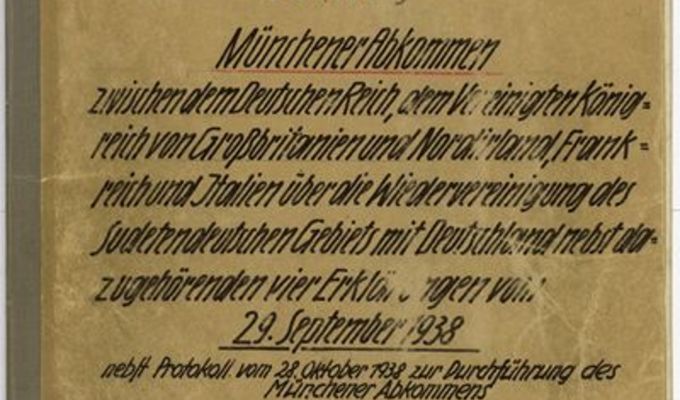 Münchener Abkommen
zwischen dem Deutschen Reich, dem Vereinigten König=
reich von Großbritanien und Nordirland, Frank=
reich und Italien über die Wiedervereinigung des
Sudetendeutschen Gebiets mit Deutschland nebst da=
zugehörenden vier Erklärungen vom
29. September 1938
nebst Protokoll vom 28. Oktober 1938 zur Durchführung des
Münchener Abkommens